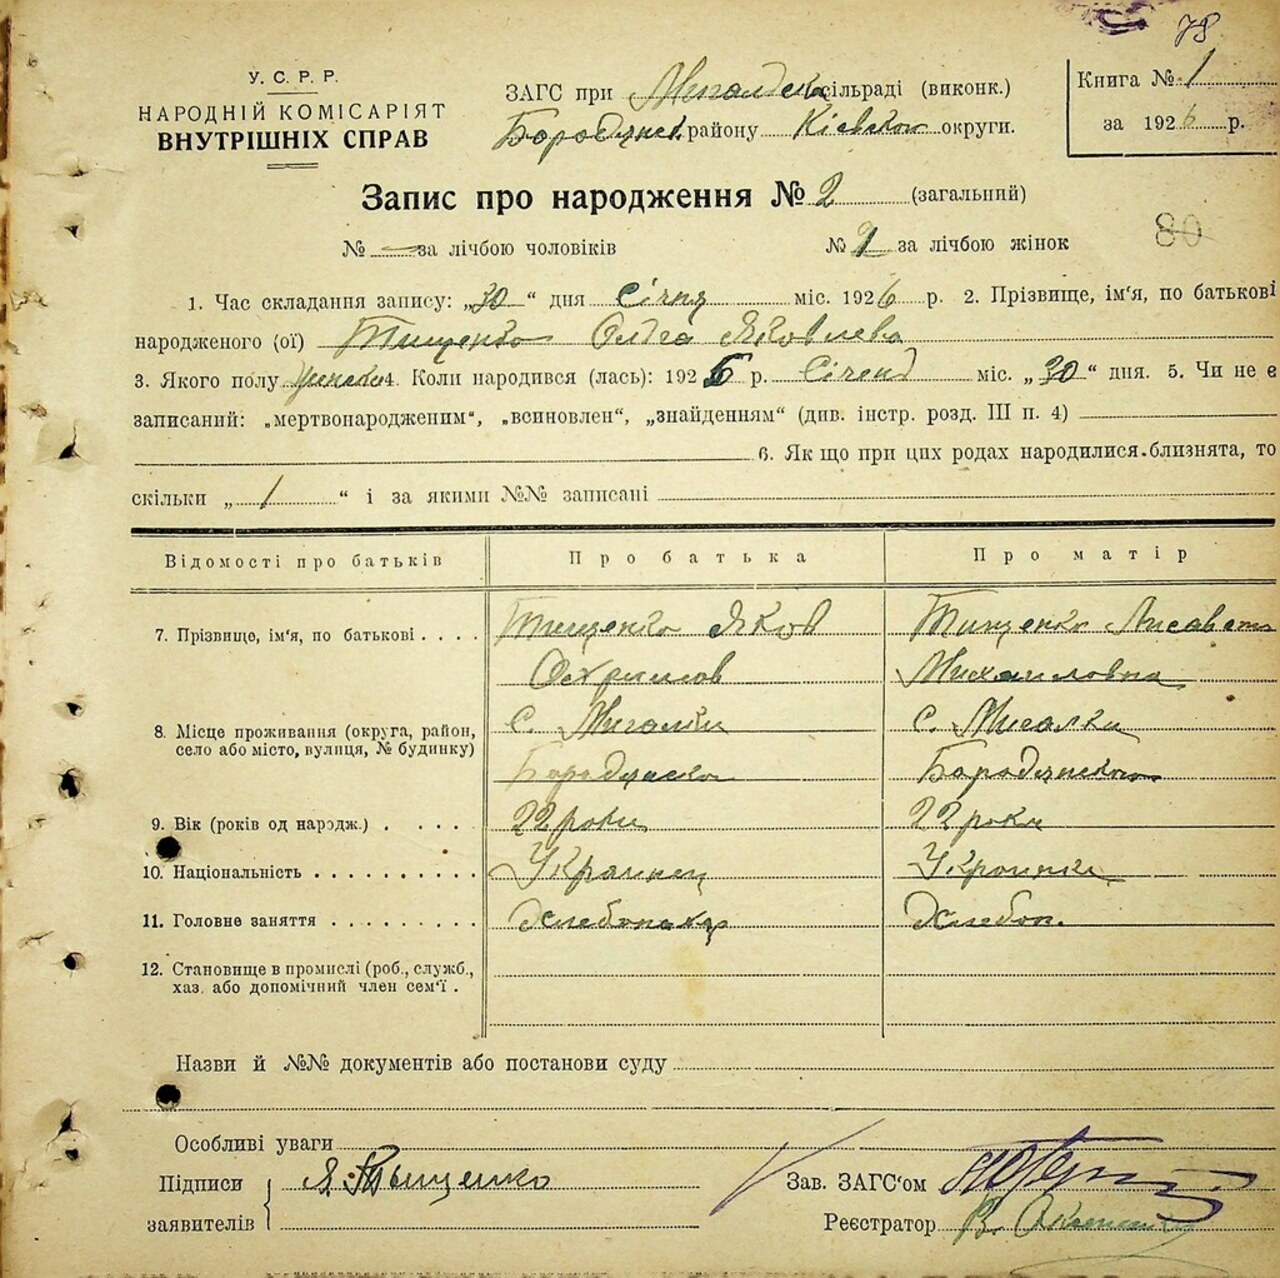 78
У. С. Р. Р.
НАРОДНІЙ КОМІСАРІЯТ
ВНУТРІШНІХ СПРАВ
ЗАГС при сільраді (виконк.)
району Кіевской округи.
Книга № 1
за 1926 р.
Запис про народження № 2 (загальний)
№ — за лічбою чоловіків № 2 за лічбою жінок
80
1. Час складання запису: „30“ дня Січня міс. 1926 р. 2. Прізвище, ім‘я, по батькові
народженого (ої) Тищенко Олга Яковлева
3. Якого полу 4. Коли народився (лась): 1926 р. міс. „30“ дня. 5. Чи не є
записаний: „мертвонародженим“, „всиновлен“, „знайденням“ (див. інстр. розд. III п. 4)
6. Як що при цих родах народилися близнята, то
скільки „ 1 “ і за якими №№ записані
Відомості про батьків Про батька Про матір
7. Прізвище, ім‘я, по батькові . . . . Тищенко Яков Тищенко
Михаиловна
8. Місце проживання (округа, район, С. Мигалки С. Мигалки
село або місто, вулиця, № будинку)
9. Вік (років од народж.) . . . . . 22 роки 22 роки
10. Національність . . . . . . . . . . Украинец Украинка
11. Головне заняття . . . . . . . . . Хлебопашец Хлебоп.
12. Становище в промислі (роб., служб.,
хаз. або допомічний член сем‘ї .
Назви й №№ документів або постанови суду
Особливі уваги
Підписи Я. Тыщенко Зав. ЗАГС‘ом
заявителів Реєстратор В.